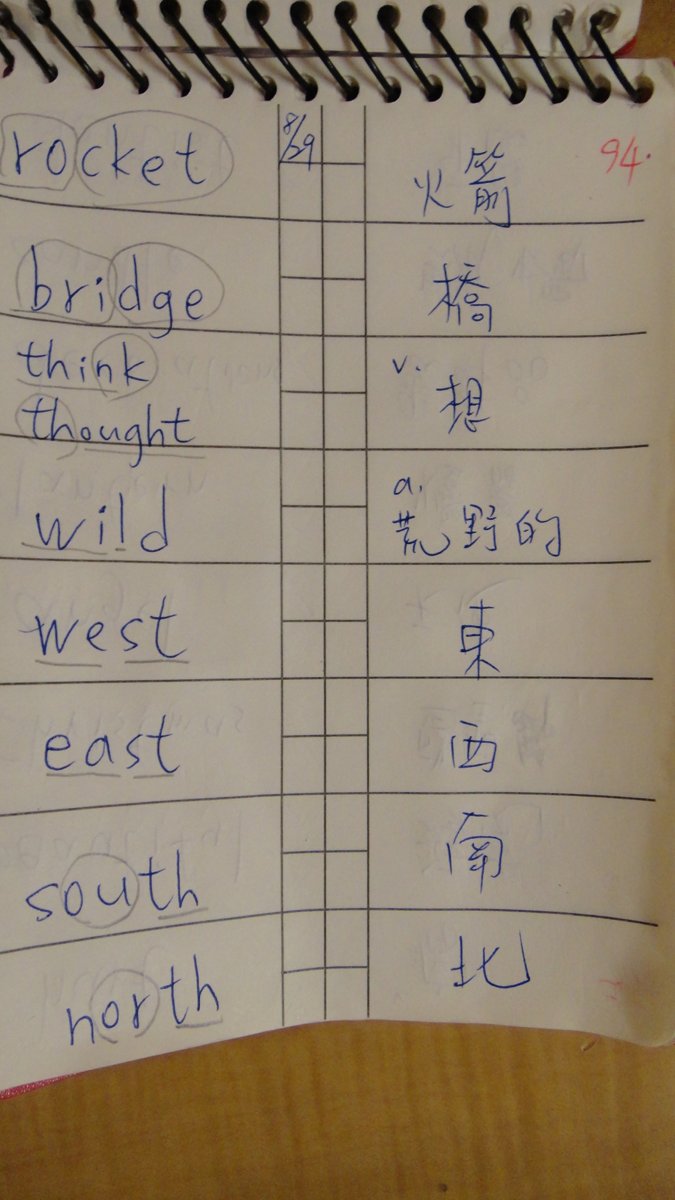 rocket 8/29 火箭 94.
bridge 橋
think v.
thought 想
a.
wild 荒野的
west 東
east 西
south 南
north 北